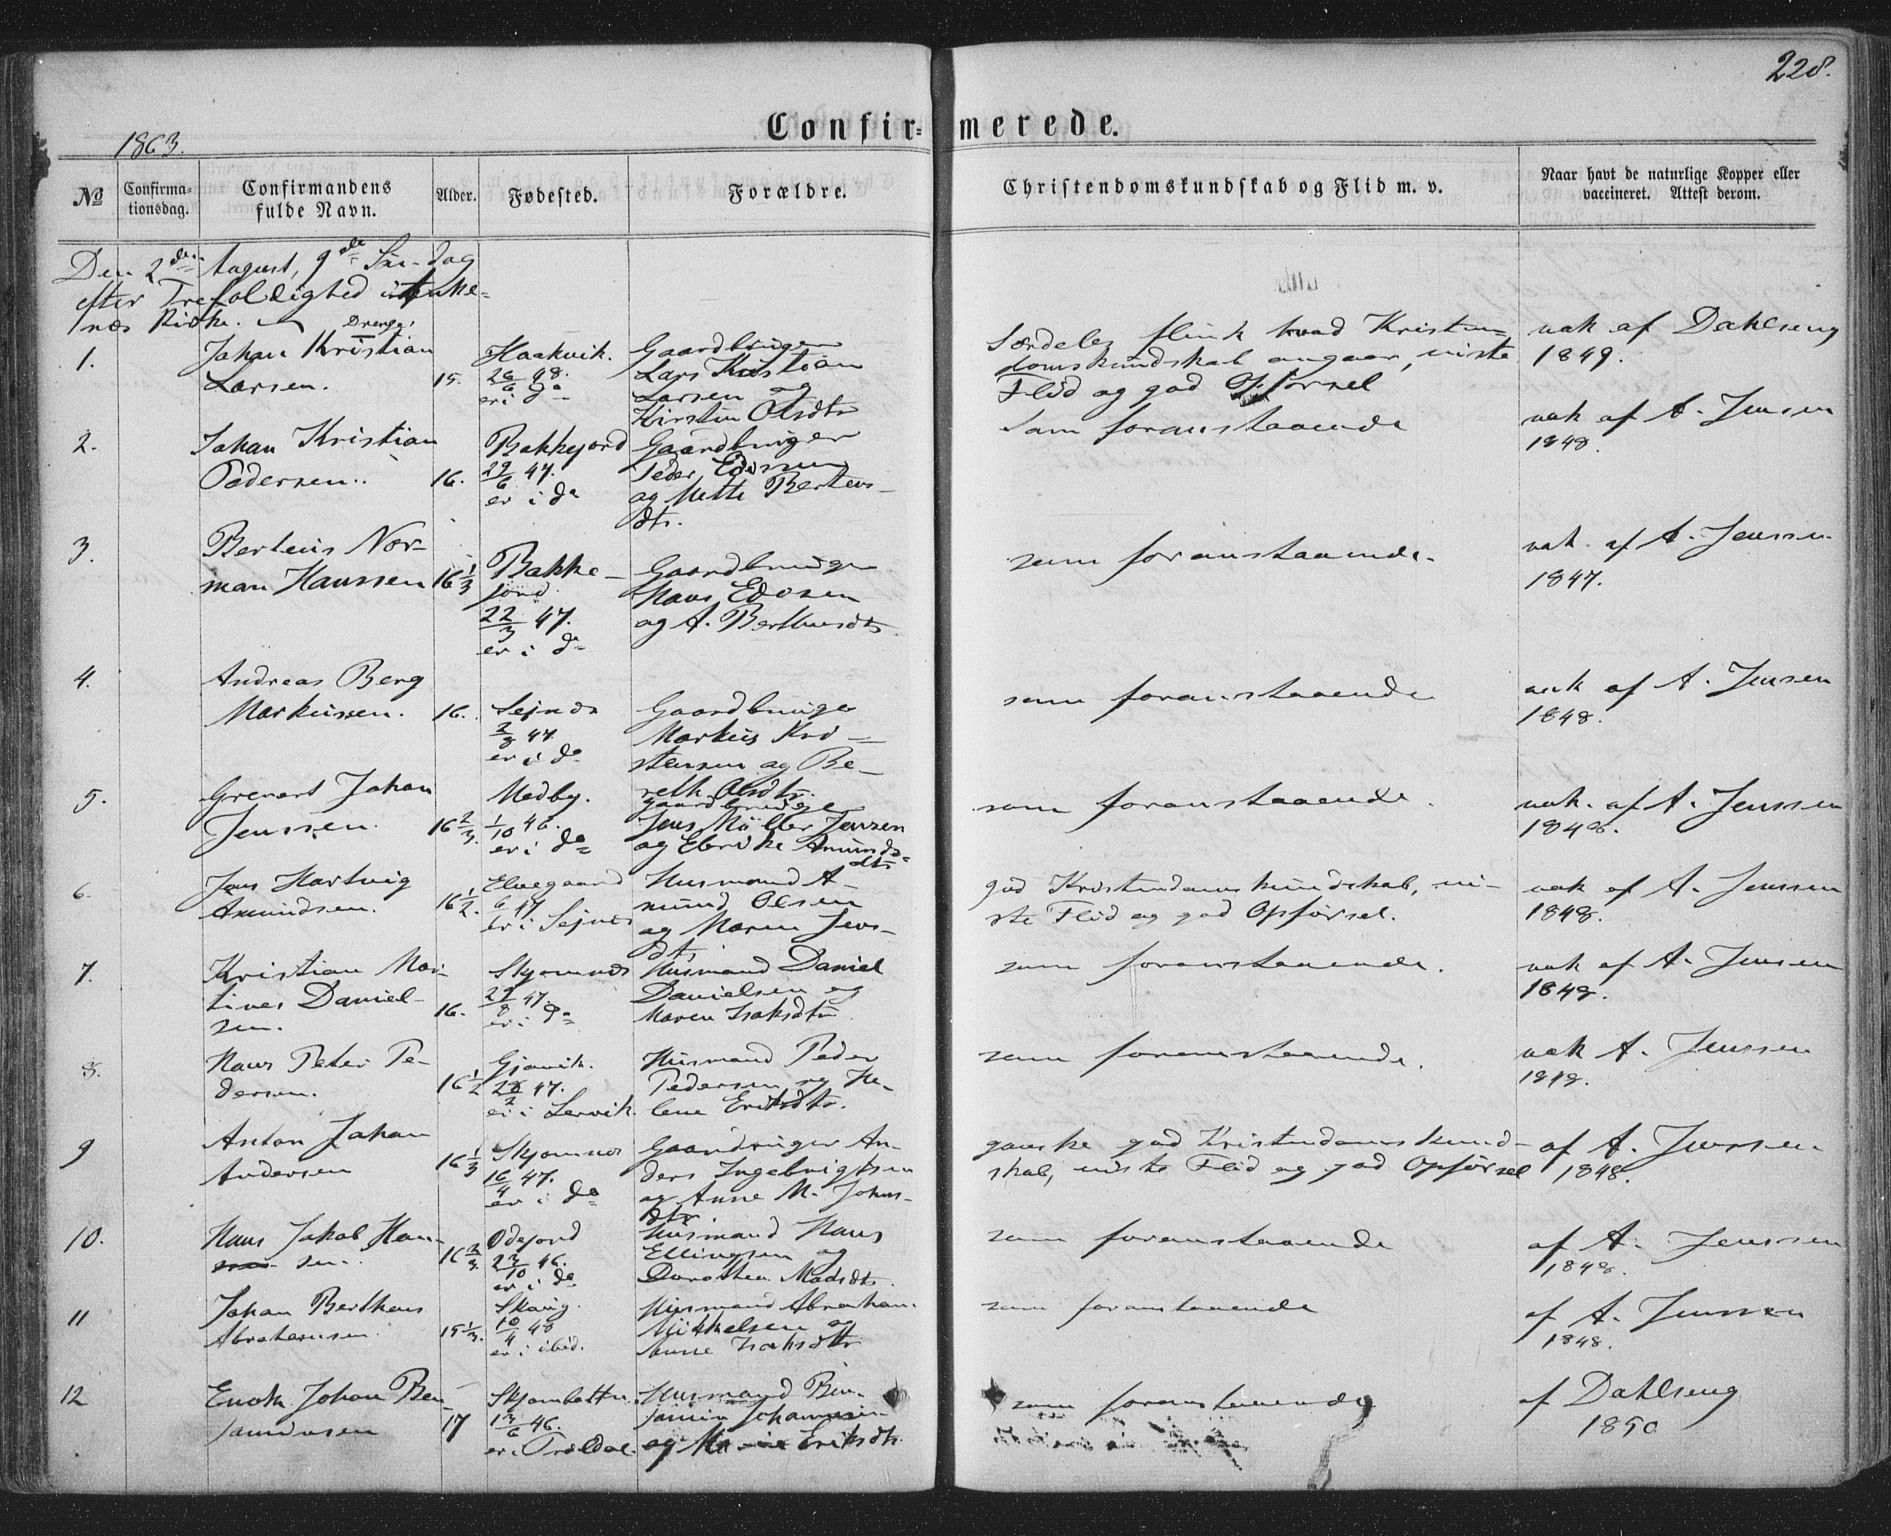 228.
Confir= merede.
1863.
No
Confirma-
tionsdag.
Confirmandens
fulde Navn.
Alder.
Fødested.
Forældre.
Christendomskundskab og Flid m. v.
Naar havt de naturlige Kopper eller
vaccineret. Attest derom.
Den 2den August, 9de Søndag
efter Trefoldighed i Anke-
næs Kirke. Drenge:
1.
Johan Kristian
Larsen.
15.
Haakvik.
26/6 48.
er i do
Gaardbruger
Lars Kristian
Larsen og
Kirsten Olsdtr
Særdeles flink hvad Kristen-
domskundskab angaar, udviste
Flid og god Opførsel
vak af Dahlseng
1849.
2.
Johan Kristian
Pedersen.
16.
Bakkejord
29/6 47.
er i do
Gaardbruger
Peder Edosen
og Mette Bertens-
dtr.
som foranstaaende
vak af A. Jensen
1848.
3.
Berteus Nor-
man Hanssen
16 1/3
Bakke-
jord
22/3 47.
er i do
Gaardbruger
Hans Edosen
og A. Berthusdtr
som foranstaaende.
vak. af A. Jenssen
1847.
4.
Andreas Berg
Markussen.
16.
Sejnes
2/8 47.
er i do
Gaardbruger
Markus Kri-
stensen og Be-
reth Olsdtr.
som foranstaaende
vak af A. Jensen
1848.
5.
Grenert Johan
Jenssen.
16 2/3.
Medby.
1/10 46.
er i do
Gaardbruger
Jens Møller Jenssen
og Elrike Amunds-
dtr
som foranstaaende.
vak. af A. Jenssen
1848.
6.
Jens Hartvig
Amundsen.
16 1/2.
Elvegaard
er i Sejnes
Husmand A-
mund Olsen
og Maren Jens-
dtr
god Kristendomskundskab, vi-
ste Flid og god Opførsel.
vak af A. Jenssen
1848.
7.
Kristian Mar-
tines Daniel-
sen.
16.
Skjomnes
29/8 47.
er i do
Husmand Daniel
Danielsen og
Maren Isaksdtr
som foranstaaende.
vak af A. Jensen
1848.
8.
Hans Peter Pe-
dersen.
16 1/2
Gjøvik.
28/2 47.
er i Lervik.
Husmand Peder
Pedersen og He-
lene Eriksdtr.
som foranstaaende.
vak A. Jenssen
1848.
9
Anton Johan
Andersen
16 1/3
Skjomnes
16/4 47.
er i do
Gaardbruger An-
ders Ingebrigtsen
og Anne M. Johns-
dtr
ganske god Kristendomskund-
skab, udviste Flid og god Opførsel
af A. Jenssen
1848.
10.
Hans Jakob Han-
sen.
16 2/3
Ødejord
23/10 46.
er i do
Husmand Hans
Ellingsen og
Dorothea Madsdtr.
som foranstaaende
af A. Jenssen
1848.
11
Johan Bertheus
Abrahamsen
15 1/3.
Skavig.
10/4 48
er i ibid.
Husmand Abraham
Mikkelsen og
Anne Isaksdtr
som foranstaaende
af A. Jenssen
1848.
12
Enok Johan Ben-
jaminsen
17
Skjombotten
13/6 46.
er i Trældal.
Husmand Ben-
jamin Johannesen
og Marie Eriksdtr.
som foranstaaende
af Dahlseng
1850